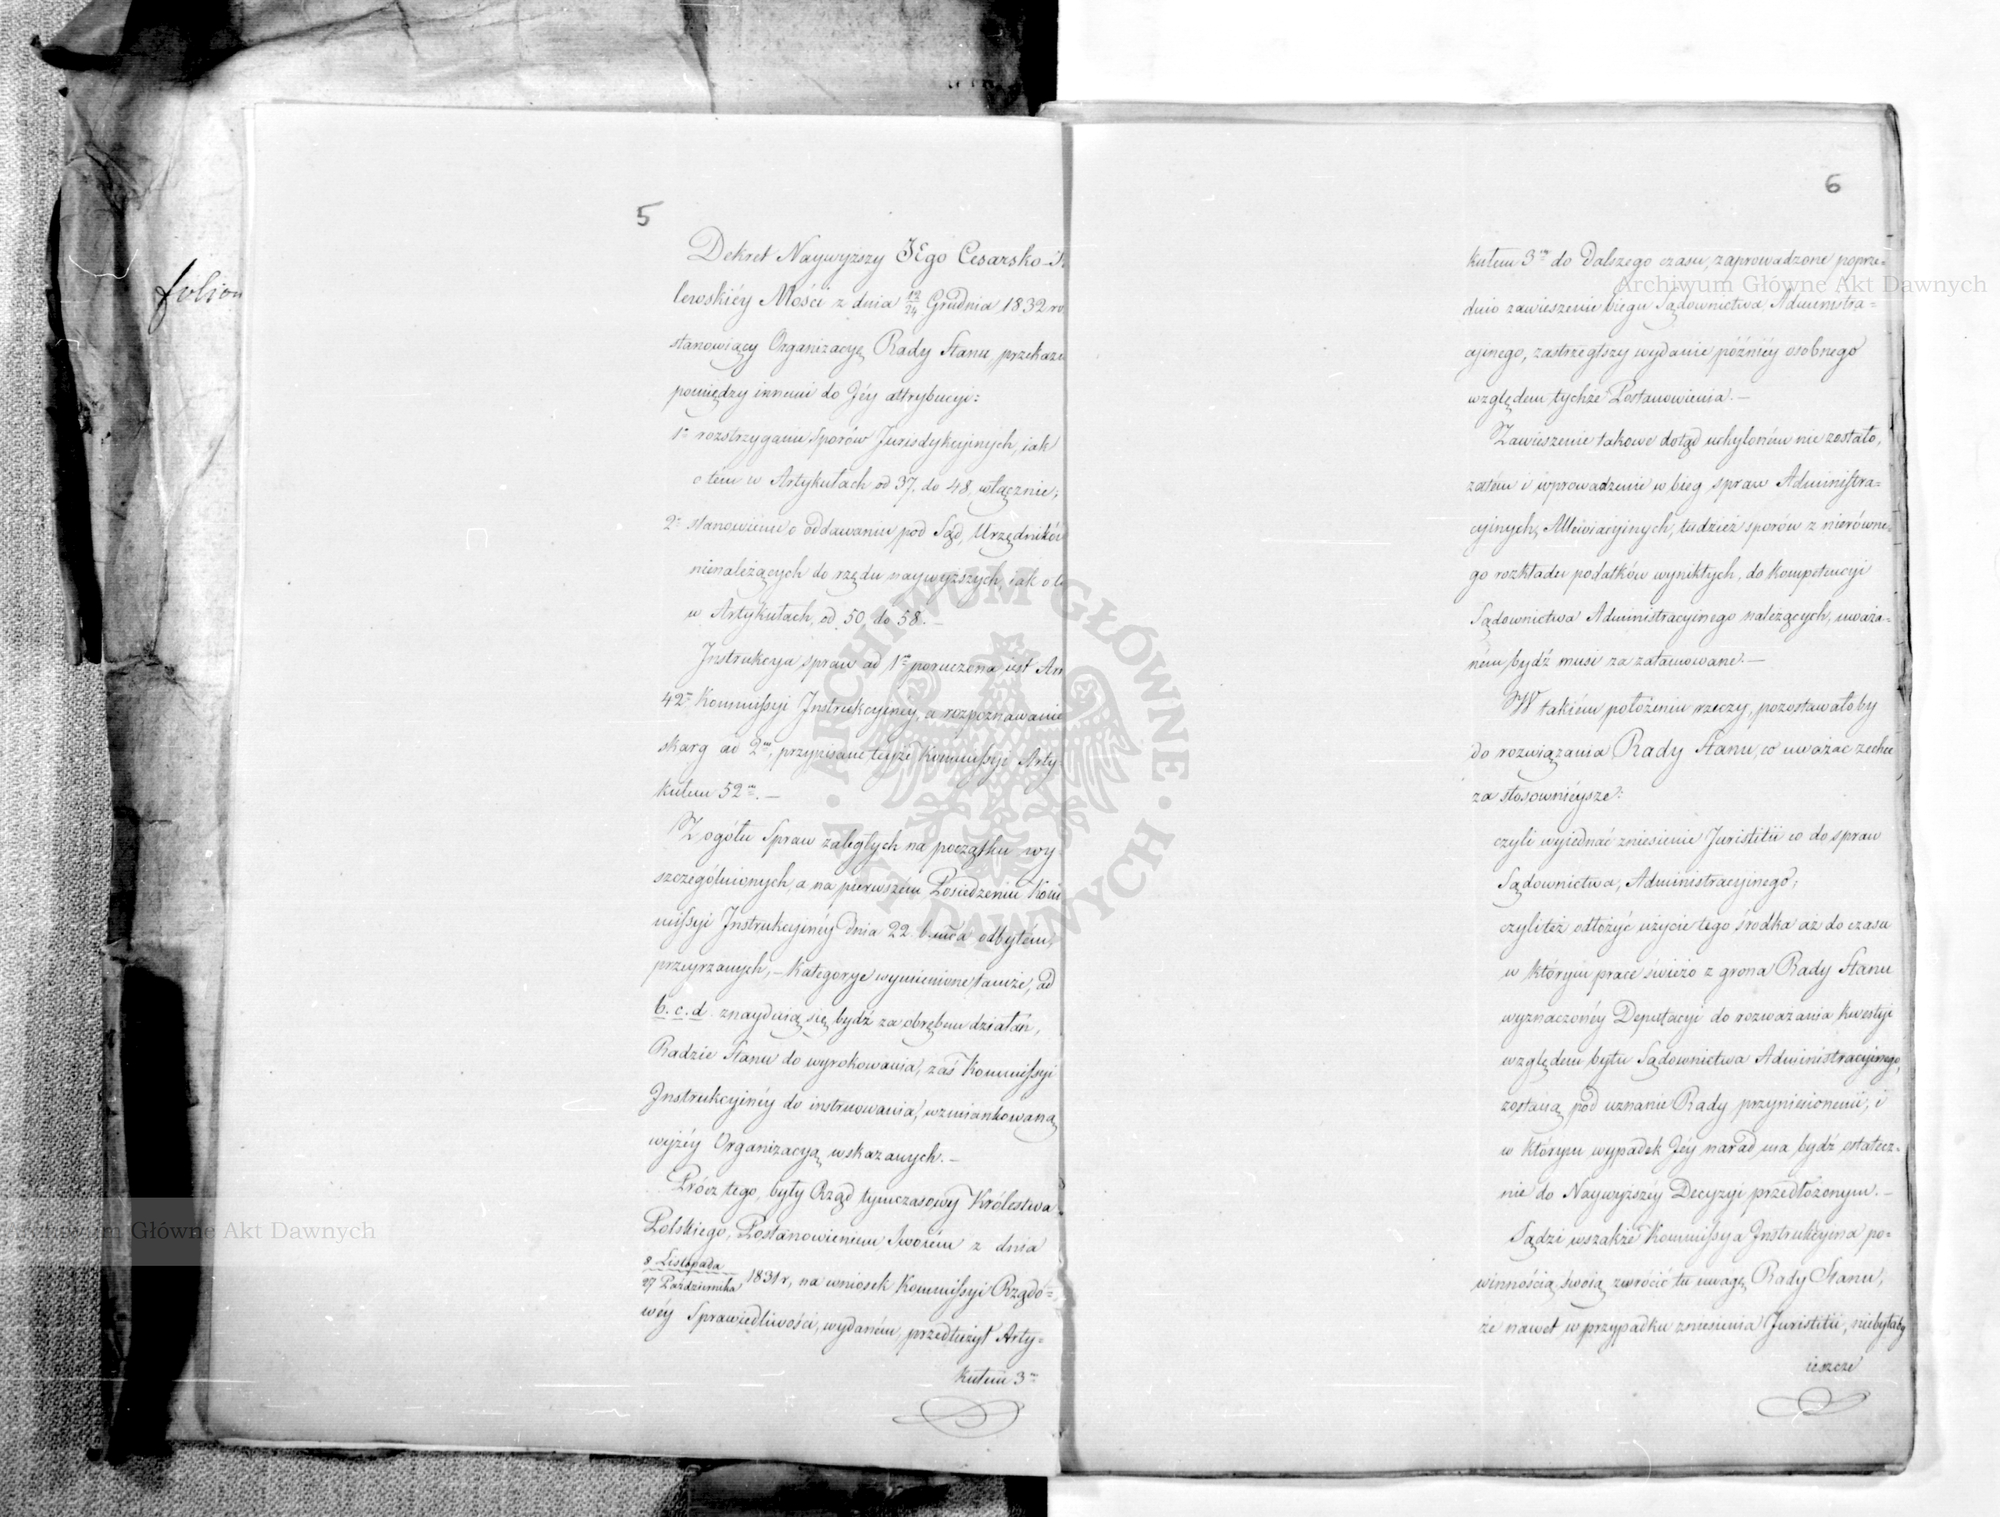 folion
5
Dekret Naywyższy JEgo Cesarsko-K
lewskiéy Mości z dnia 12/24 Grudnia 1832 ro
stanowiący Organizacyę Rady Stanu, przekaza
pomiędzy innemi do Jéy attrybucyi:
1o rozstrzyganiu Sporów Jurisdykcyinych, iak
o tem w Artykułach od 37, do 48, włącznie;
2o stanowieniu o oddawaniu pod Sąd, Urzędników
nienależących do rzędu naywyższych, iak o te
w Artykułach, od 50, do 58. —
Instrukcya spraw ad 1m poruczona iest Art
42m Kommissyi Instrukcyinéy, a rozpoznawanie
skarg ad 2m, przypisane teyże Kommissyi Arty
kułem 52m. —
Z ogółu Spraw zaległych na początku wy
szczególnionych, a na pierwszém Posiedzeniu Kom
missyi Instrukcyinéy dnia 22 b. odbytém,
przeyrzanych, — Kategorye wymienione tamże, ad
b. c. d. znayduią się bydź za obrębem działań,
Radzie Stanu do wyrokowania, zaś Kommissyi
Instrukcyinéy do instruowania, wzmiankowaną
wyżéy Organizacyą wskazanych. —
Prócz tego, były Rząd tymczasowy Królestwa
Polskiego, Postanowieniem Swoiém z dnia
8 Listopada
27 Października 1831 r, na wniosek Kommissyi Rządo=
wéy Sprawiedliwości, wydaném, przedłużył Arty=
kułem 3m
6
kułem 3m do dalszego czasu, zaprowadzone poprze=
dnio zawieszenie biegu Sądownictwa Administra=
cyinego, zastrzegłszy wydanie późniéy osobnego
względem tychże Postanowienia. —
Zawieszenie takowe dotąd uchyloném nie zostało,
zatém i wprowadzenie w bieg spraw Administra=
cyinych, Alleviacyinych, tudzież sporów z nierówne=
go rozkładu podatków wynikłych, do kompetencyi
Sądownictwa Administracyinego należących, uważa=
ném bydź musi za zatamowane. —
W takiém położeniu rzeczy, pozostawałoby
do rozwiązania Rady Stanu, co uważać zechce
za stosownieysze:
czyli wyiednać zniesienie Juristitii co do spraw
Sądownictwa, Administracyinego;
czyli też odłożyć użycie tego środka aż do czasu
w którym prace świeżo z grona Rady Stanu
wyznaczonéy Deputacyi do rozważania kwestyi
względem bytu Sądownictwa Administracyinego,
zostaną pod uznanie Rady przyniesionemi, i
w którym wypadek Jéy narad ma bydź ostatecz=
nie do Naywyższéy Decyzyi przedłożonym. —
Sądzi wszakże Kommissya Instrukcyina po=
winnością swoią zwrócić tu uwagę Rady Stanu,
że nawet w przypadku zniesienia Juristitii, niebyłaby
ieszcze
Archiwum Główne Akt Dawnych
Archiwum Główne Akt Dawnych
ARCHIWUM GŁÓWNE AKT DAWNYCH